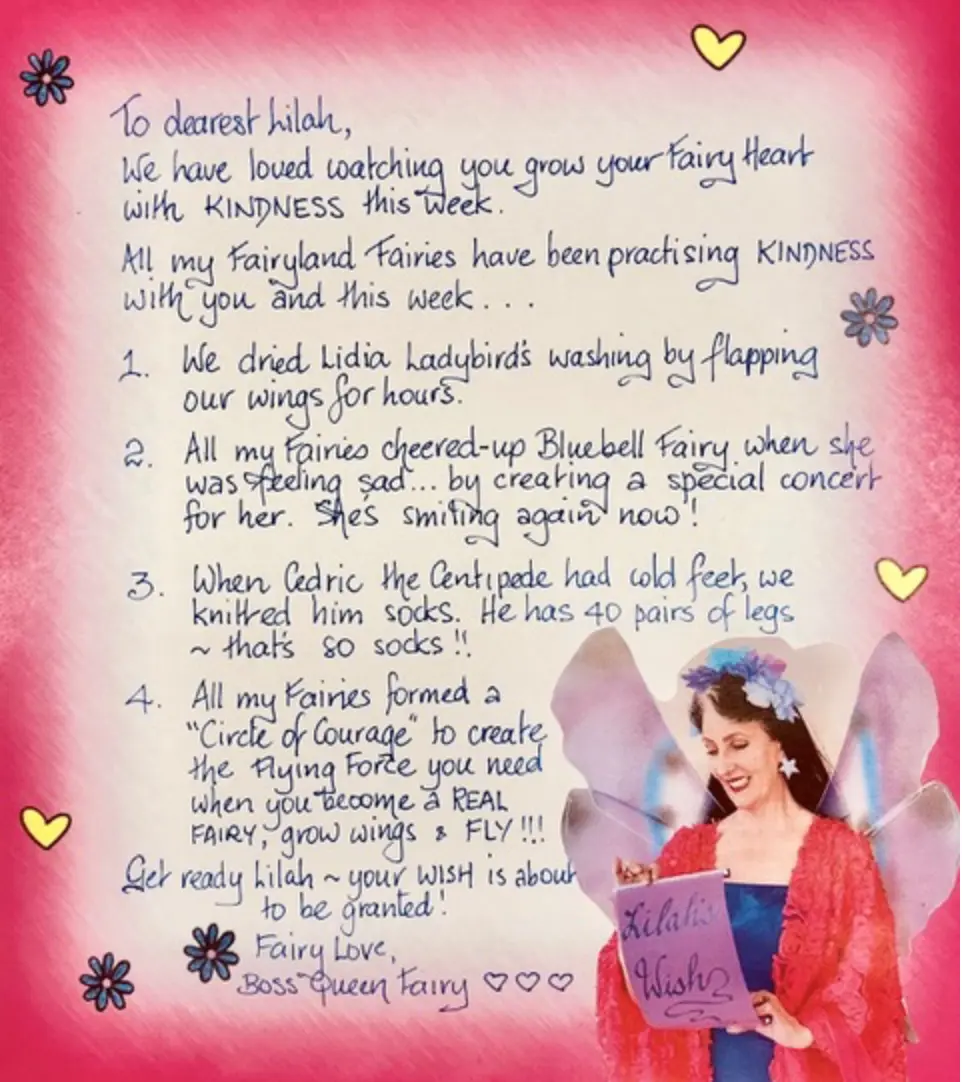 To dearest Lilah,
We have loved watching you grow your Fairy Heart
with KINDNESS this week.
All my Fairyland Fairies have been practising KINDNESS
with you and this week...
1. We dried Lidia Ladybird's washing by flapping
our wings for hours.
2. All my Fairies cheered-up Bluebell Fairy when she
was feeling sad... by creating a special concert
for her. She's smiling again now!
3. When Cedric the Centipede had cold feet, we
knitted him socks. He has 40 pairs of legs
~ that's 80 socks!!
4. All my Fairies formed a
"Circle of Courage" to create
the Flying Force you need
when you become a REAL
FAIRY, grow wings & FLY!!!
Get ready Lilah ~ your WISH is about
to be granted!
Fairy Love,
Boss Queen Fairy ♡♡♡
Lilah's
Wish